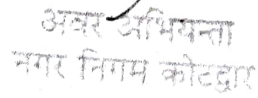 अवर अभियन्ता
नगर निगम कोटद्वार